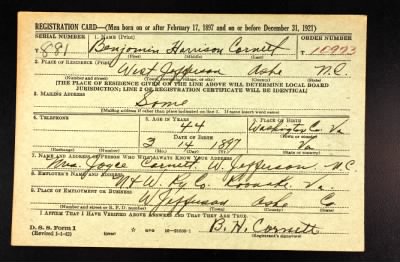 REGISTRATION CARD—(Men born on or after February 17, 1897 and on or before December 31, 1921)
SERIAL NUMBER 1. NAME (Print) ORDER NUMBER
T 881 Benjamin Harrison Cornett
(First) (Middle) (Last)
2. PLACE OF RESIDENCE (Print)
West Jefferson Ashe N.C.
(Number and street) (Town, township, village, or city) (County) (State)
[THE PLACE OF RESIDENCE GIVEN ON THE LINE ABOVE WILL DETERMINE LOCAL BOARD
JURISDICTION; LINE 2 OF REGISTRATION CERTIFICATE WILL BE IDENTICAL]
3. MAILING ADDRESS
Same
[Mailing address if other than place indicated on line 2. If same insert word same]
4. TELEPHONE 5. AGE IN YEARS 6. PLACE OF BIRTH
44 Washington Co. Va
DATE OF BIRTH (Town or county)
3 14 1897 Va
(Exchange) (Number) (Mo.) (Day) (Yr.) (State or country)
7. NAME AND ADDRESS OF PERSON WHO WILL ALWAYS KNOW YOUR ADDRESS
Mrs. Joyce Cornett W. Jefferson N.C
8. EMPLOYER'S NAME AND ADDRESS
N & W. Ry Co. Roanoke, Va.
9. PLACE OF EMPLOYMENT OR BUSINESS
W. Jefferson Ashe Co
(Number and street or R. F. D. number) (Town) (County) (State)
I AFFIRM THAT I HAVE VERIFIED ABOVE ANSWERS AND THAT THEY ARE TRUE.
D. S. S. Form 1
(Revised 1-1-42) (over) GPO B. H. Cornett
(Registrant's signature)